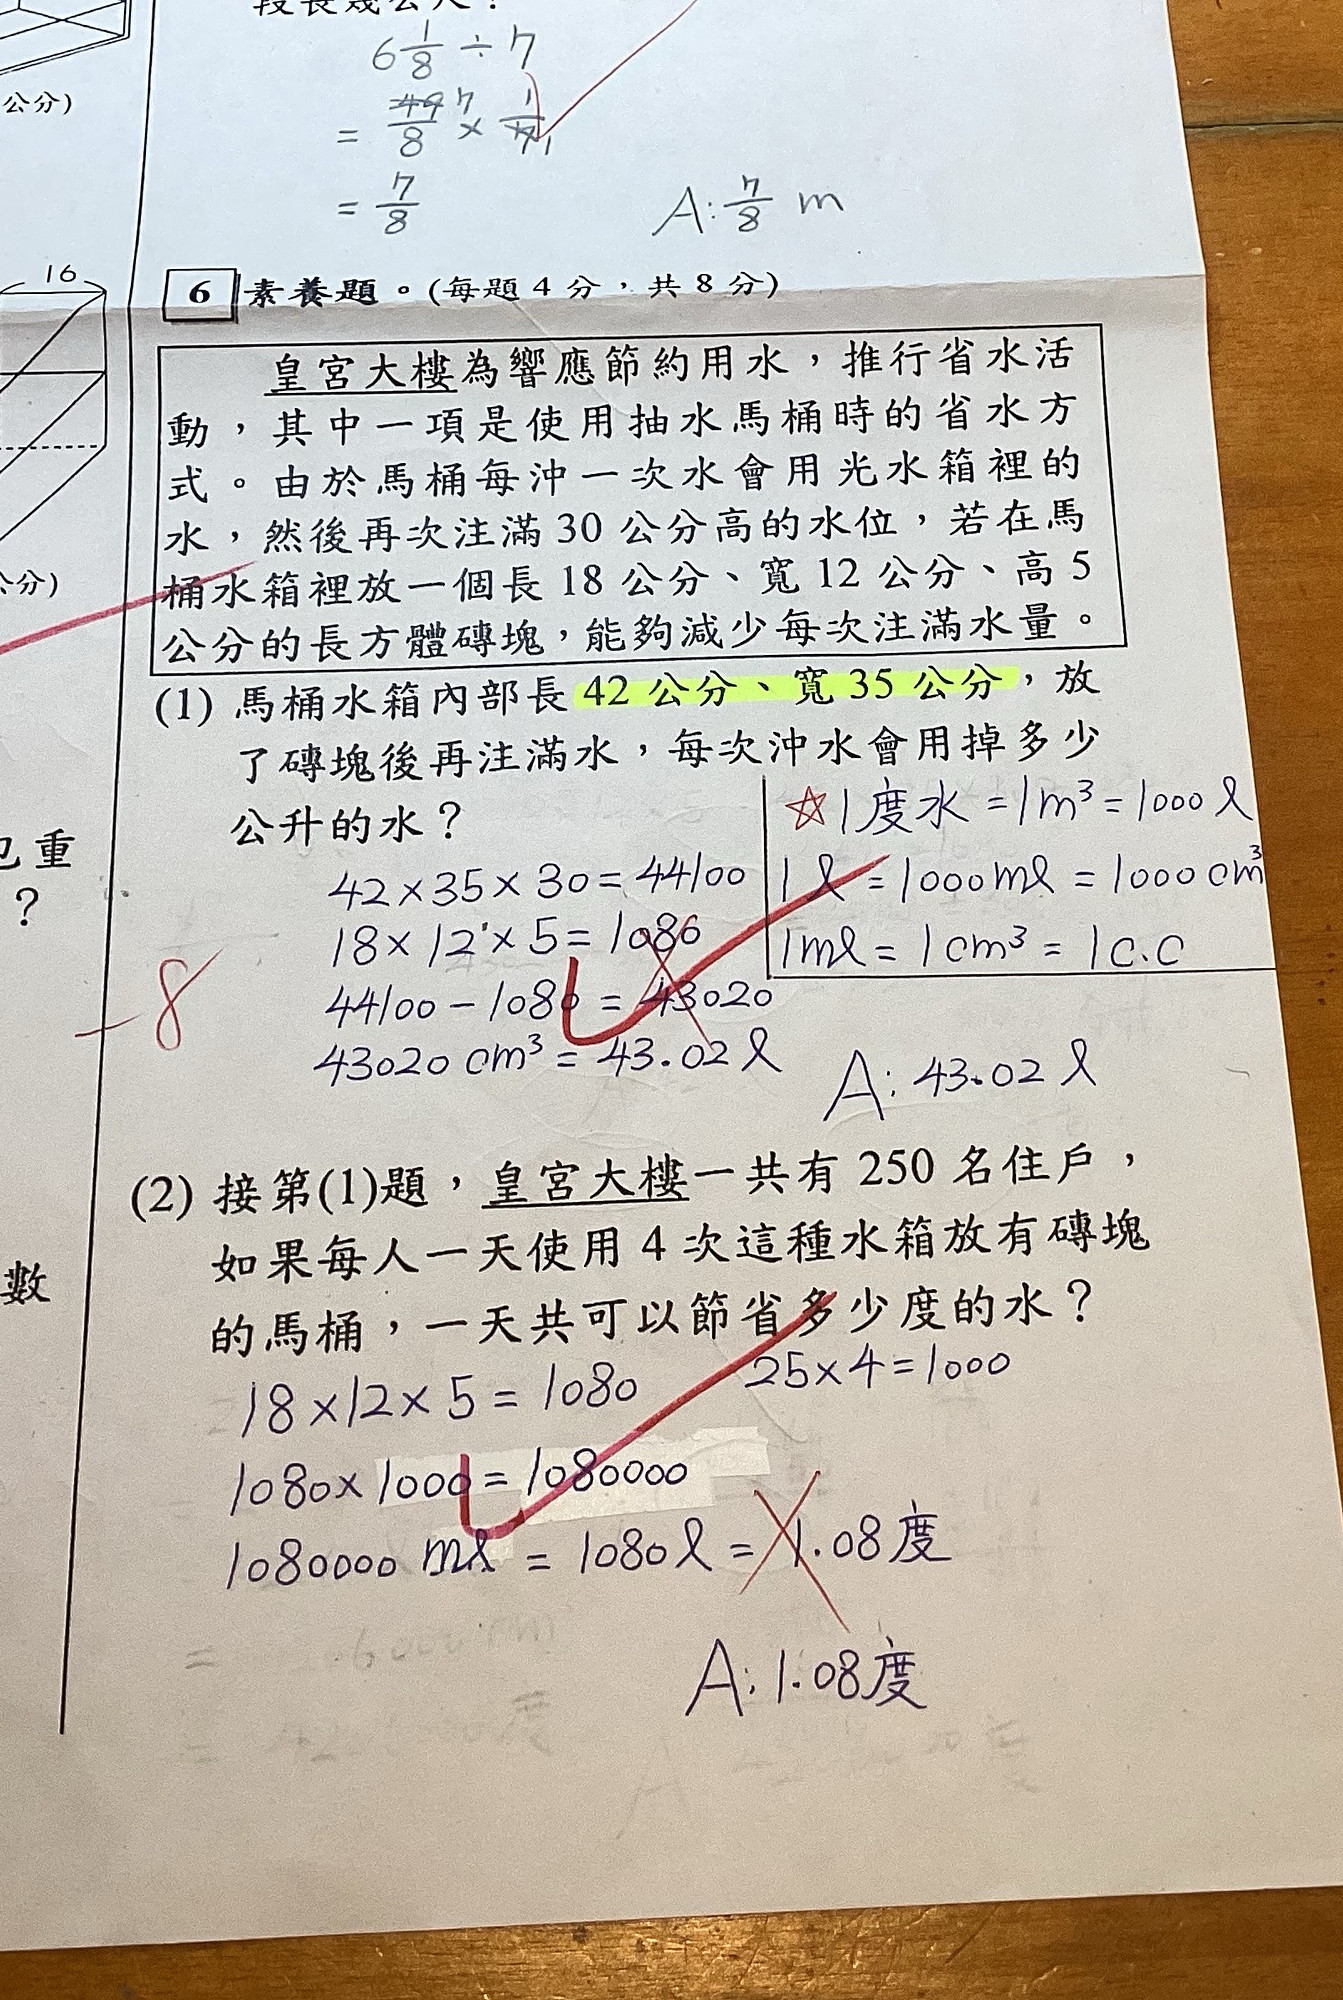 段長幾公尺？
6 1/8 ÷ 7
= 49/8 7 × 1/7 1
= 7/8
A: 7/8 m
公分)
16
6 素養題。(每題 4 分，共 8 分)
皇宮大樓為響應節約用水，推行省水活
動，其中一項是使用抽水馬桶時的省水方
式。由於馬桶每沖一次水會用光水箱裡的
水，然後再次注滿 30 公分高的水位，若在馬
桶水箱裡放一個長 18 公分、寬 12 公分、高 5
公分的長方體磚塊，能夠減少每次注滿水量。
公分)
(1) 馬桶水箱內部長 42 公分、寬 35 公分，放
了磚塊後再注滿水，每次沖水會用掉多少
公升的水？
☆1度水 = 1m³ = 1000 l
1 l = 1000ml = 1000 cm³
1ml = 1cm³ = 1c.c
42×35×30=44100
18×12×5=1080
44100-1080=43020
43020 cm³ = 43.02 l
A: 43.02 l
-8
重
？
數
(2) 接第(1)題，皇宮大樓一共有 250 名住戶，
如果每人一天使用 4 次這種水箱放有磚塊
的馬桶，一天共可以節省多少度的水？
25×4=1000
18×12×5=1080
1080×1000=1080000
1080000 ml = 1080 l = 1.08度
A: 1.08度